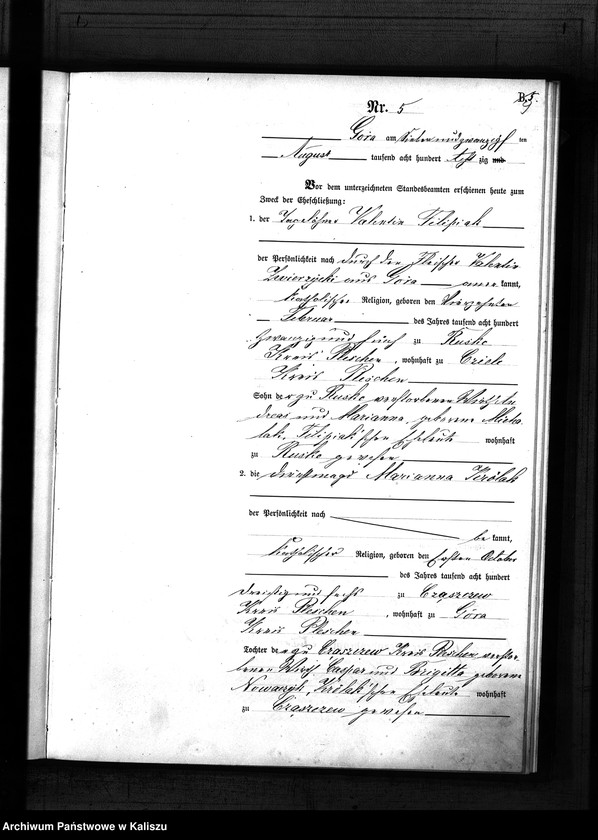 B.
Nr. 5
Góra am siebenundzwanzigsten
August tausend acht hundert achtzig und
Vor dem unterzeichneten Standesbeamten erschienen heute zum
Zweck der Eheschließung:
1. der Tagelöhner Valentin Filipiak
der Persönlichkeit nach durch den Fleischer Valentin
aus Góra anerkannt,
katholischer Religion, geboren den vierzehnten
Februar des Jahres tausend acht hundert
zwanzig und fünf zu Kuske
Kreis Pleschen, wohnhaft zu
Kreis Pleschen
Sohn der zu Ruske verstorbenen Wirth An
dreas und Marianna geborene
Filipiak'schen Eheleute wohnhaft
zu Ruske gewesen
2. die Dienstmagd Marianna Królak
der Persönlichkeit nach
bekannt,
katholischer Religion, geboren den ersten October
des Jahres tausend acht hundert
dreißig und sechs zu
Kreis Pleschen, wohnhaft zu Góra
Kreis Pleschen
Tochter der zu Kreis Pleschen verstor
benen Wirth Caspar und Brigitta geborene
Królak'schen Eheleute wohnhaft
zu gewesen
Archiwum Państwowe w Kaliszu